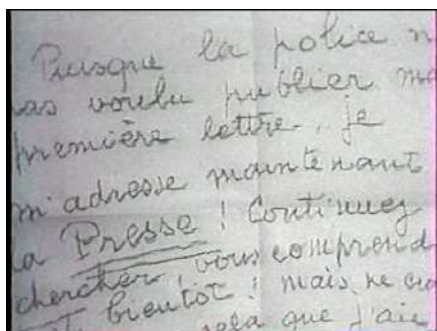 Puisque la police n
pas voulu publier ma
première lettre, je
m'adresse maintenant
la Presse ! Continuez
chercher, vous comprend
bientot ! mais, ne cro
cela que j'aie